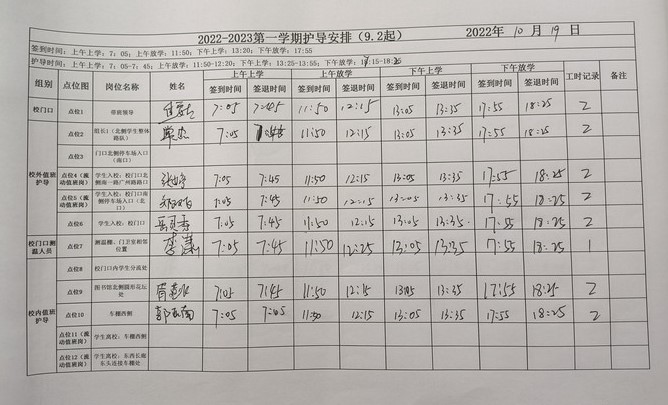 2022-2023第一学期护导安排（9.2起） 2022年 10月 19日
签到时间：上午上学：7：05；上午放学：11:50；下午上学：13:20；下午放学：17:55
护导时间：上午上学：7：05-7：45；上午放学：11:50-12:20；下午上学：13:25-13:55；下午放学：
组别 点位图 岗位名称 姓名 上午上学 上午放学 下午上学 下午放学 工时记录 备注
签到时间 签退时间 签到时间 签退时间 签到时间 签退时间 签到时间 签退时间
校门口 点位1 带班领导 7:05 7:45 11:50 12:15 13:05 13:35 17:55 18:25 2
校外值班护导 点位2 组长1（北侧学生整体路队） 7:05 11:50 12:15 13:05 13:35 17:55 18:25 2
点位3 门口北侧停车场入口（南口）
点位4（流动值班岗） 学生入校：校门口北侧南一路广州路路口 7:05 7:45 11:50 12:15 13:05 13:35 17:55 18:25 2
点位5（流动值班岗） 学生入校：校门口南侧停车场入口（北口） 7:05 7:45 11:50 12:15 13:05 13:35 17:55 18:25 2
点位6 学生入校：校门口 7:05 7:45 11:50 12:15 13:05 13:35 17:55 18:25 2
校门口测温人员 点位7 测温棚、门卫室相邻位置 7:05 7:45 11:50 12:25 13:05 13:35 17:55 18:25 1
校内值班护导 点位8 校门口内学生分流处
点位9 图书馆北侧圆形花坛处 7:05 7:45 11:50 12:15 13:05 13:35 17:55 18:25 2
点位10 车棚西侧 7:05 7:45 11:50 12:15 13:05 13:35 17:55 18:25 2
点位11（流动值班岗） 学生离校：车棚西侧
点位12（流动值班岗） 学生离校：东西长廊东头连接车棚处